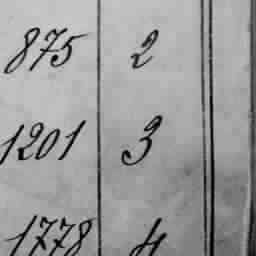 875 2
1201 3
1778 4